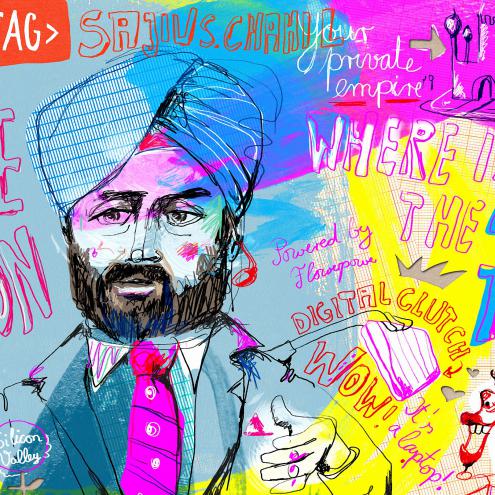 TAG>
SAJIV S. CHAHIL
Your
private
empire"
WHERE I
THE
ON
Powered by
DIGITAL CLUTCH
WOW!
It's
a laptop!
Silicon
Valley